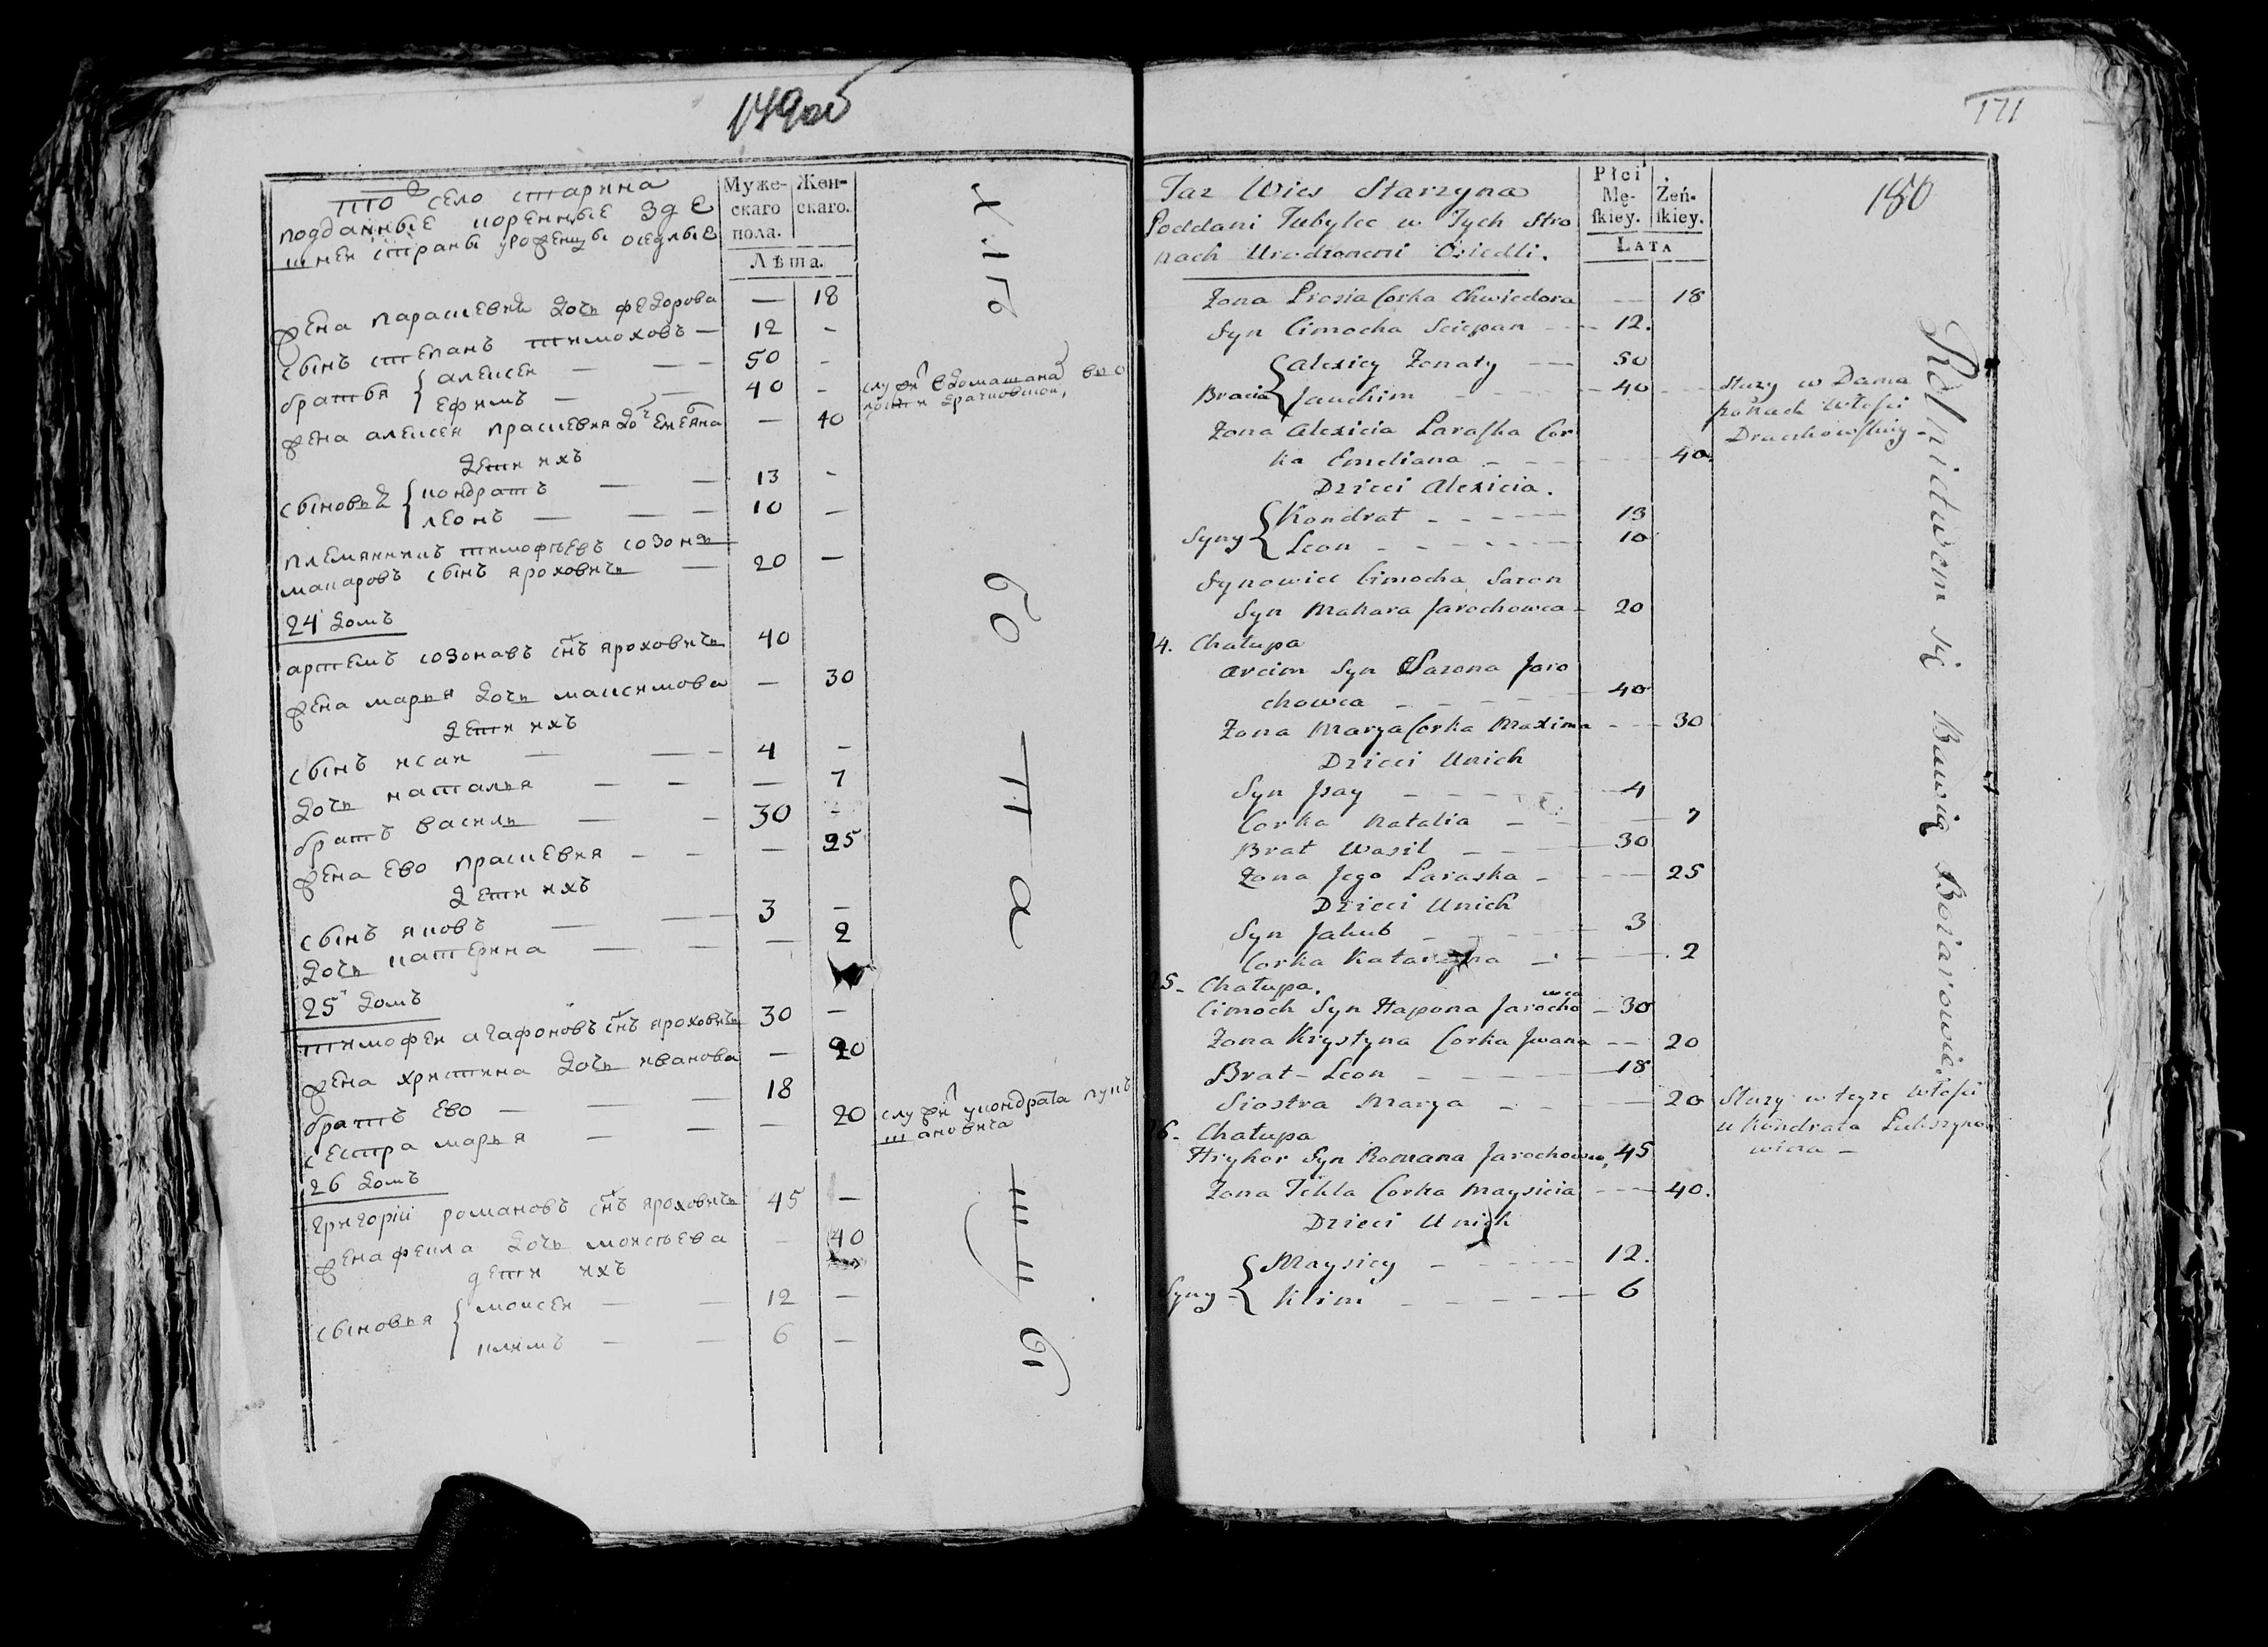 149об
то ж село старина
подданные коренные зде
шнеи страны уроженцы оседлые
Муже-
скаго
пола.
Жен-
скаго.
Лѣта.
жена парасневия дочь федорова — 18
сынъ степанъ тимоховъ — 12 -
братья { алексеи — — — 50 -
ефимъ — — 40 -
жена алексея прасневия до емеяна — 40
дети ихъ
сыновья { кондратъ — — 13 -
леонъ — — — 10 —
племянникъ тимофѣевъ созонъ
макаровъ сынъ ярохович — 20 —
24 домъ
артемъ созонавъ снъ ярохович 40
жена марья дочь максимова — 30
дети ихъ
сынъ исаи — — - 4 -
дочь наталья — — — 7
братъ василь — - 30 -
жена ево прасневия - - — 25
дети ихъ
сынъ яковъ — — - 3 -
дочь катерина — - — 2
25 домъ
тимофеи агафоновъ снъ ярохович 30 —
жена христина дочь иванова — 20
братъ ево — — — 18
сестра марья — — — 20
26 домъ
григорїи романовъ снъ ярохович 45 —
жена фекла дочь моисѣева - 40
дети ихъ
сыновья { моисеи — — 12 —
климъ — — 6 —
служи
служи укондрата лук
шановича
171
150
Taz Wies Starzyna
Poddani Tubylce w Tych Stro
nach Urodzonemi Osiedli.
Płci
Mę-
skiey.
Żeń-
skiey.
LATA
Zona Prosia Corka Chwiedora — 18
Syn Cimocha Sciepan — 12.
{ Alexiey Zonaty — 50
Bracia { Jauchim — 40
Zona Alexieia Paraska Cor
ka Emeliana — 40.
Dzieci Alexieia.
{ Kondrat — 13
Syny { Leon — 10
Synowiec Cimocha Sazon
Syn Makara Jarochowca - 20
4. Chałupa
Arcim Syn Sazona Jaro
chowca — 40
Zona Marya Corka Maxima — 30
Dzieci Unich
Syn Jsay — 4
Corka Natalia — 7
Brat Wasil — 30
Zona Jego Paraska — 25
Dzieci Unich
Syn Jakub — 3
Corka Katarzyna — 2
5. Chałupa.
Cimoch Syn Hapona Jarocho wca — 30
Zona Krystyna Corka Jwana — 20
Brat - Leon — 18
Siostra Marya — 20
6. Chałupa
Hryhor Syn Romana Jarochowca, 45
Zona Tekla Corka Maysieia — 40.
Dzieci Unich
{ Maysiey — 12.
Syny { Klim — 6
Służy w Dama
kanach Włości
Draczkowskiey -
Służy w teyze Włości
u Kondrata Lukszyno
wicza -
Rolnictwem się Bawią Boiarowie.